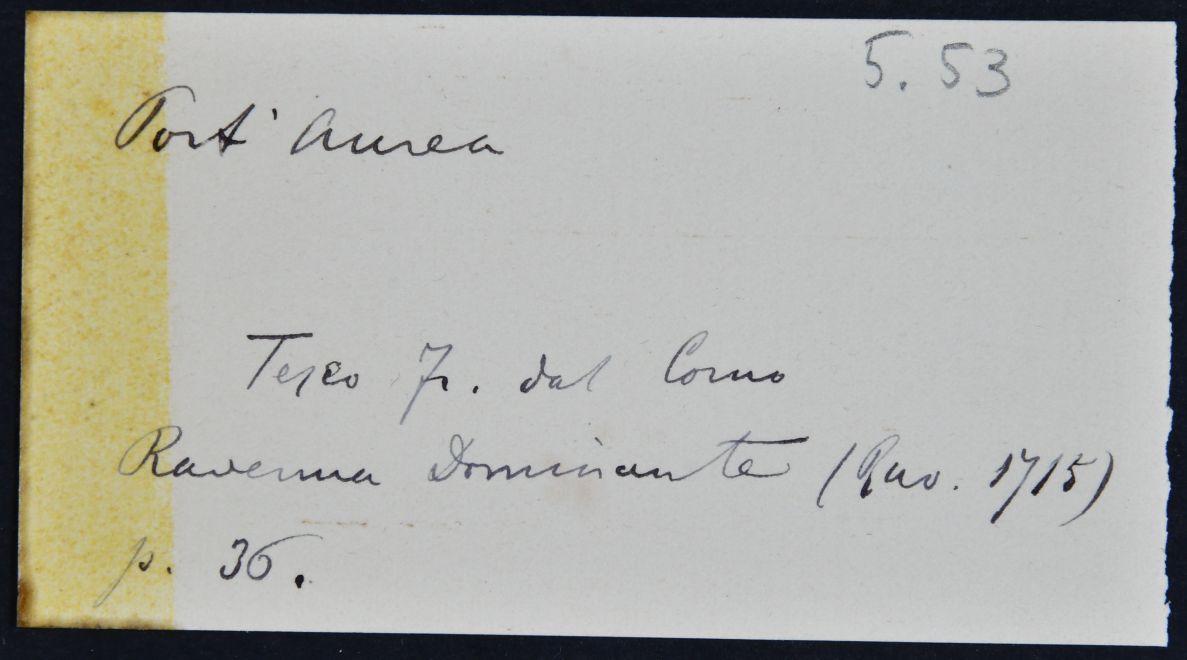 5. 53
Port' Aurea
Teseo Fr. dal Corno
Ravenna Dominante (Rav. 1715)
p. 36.